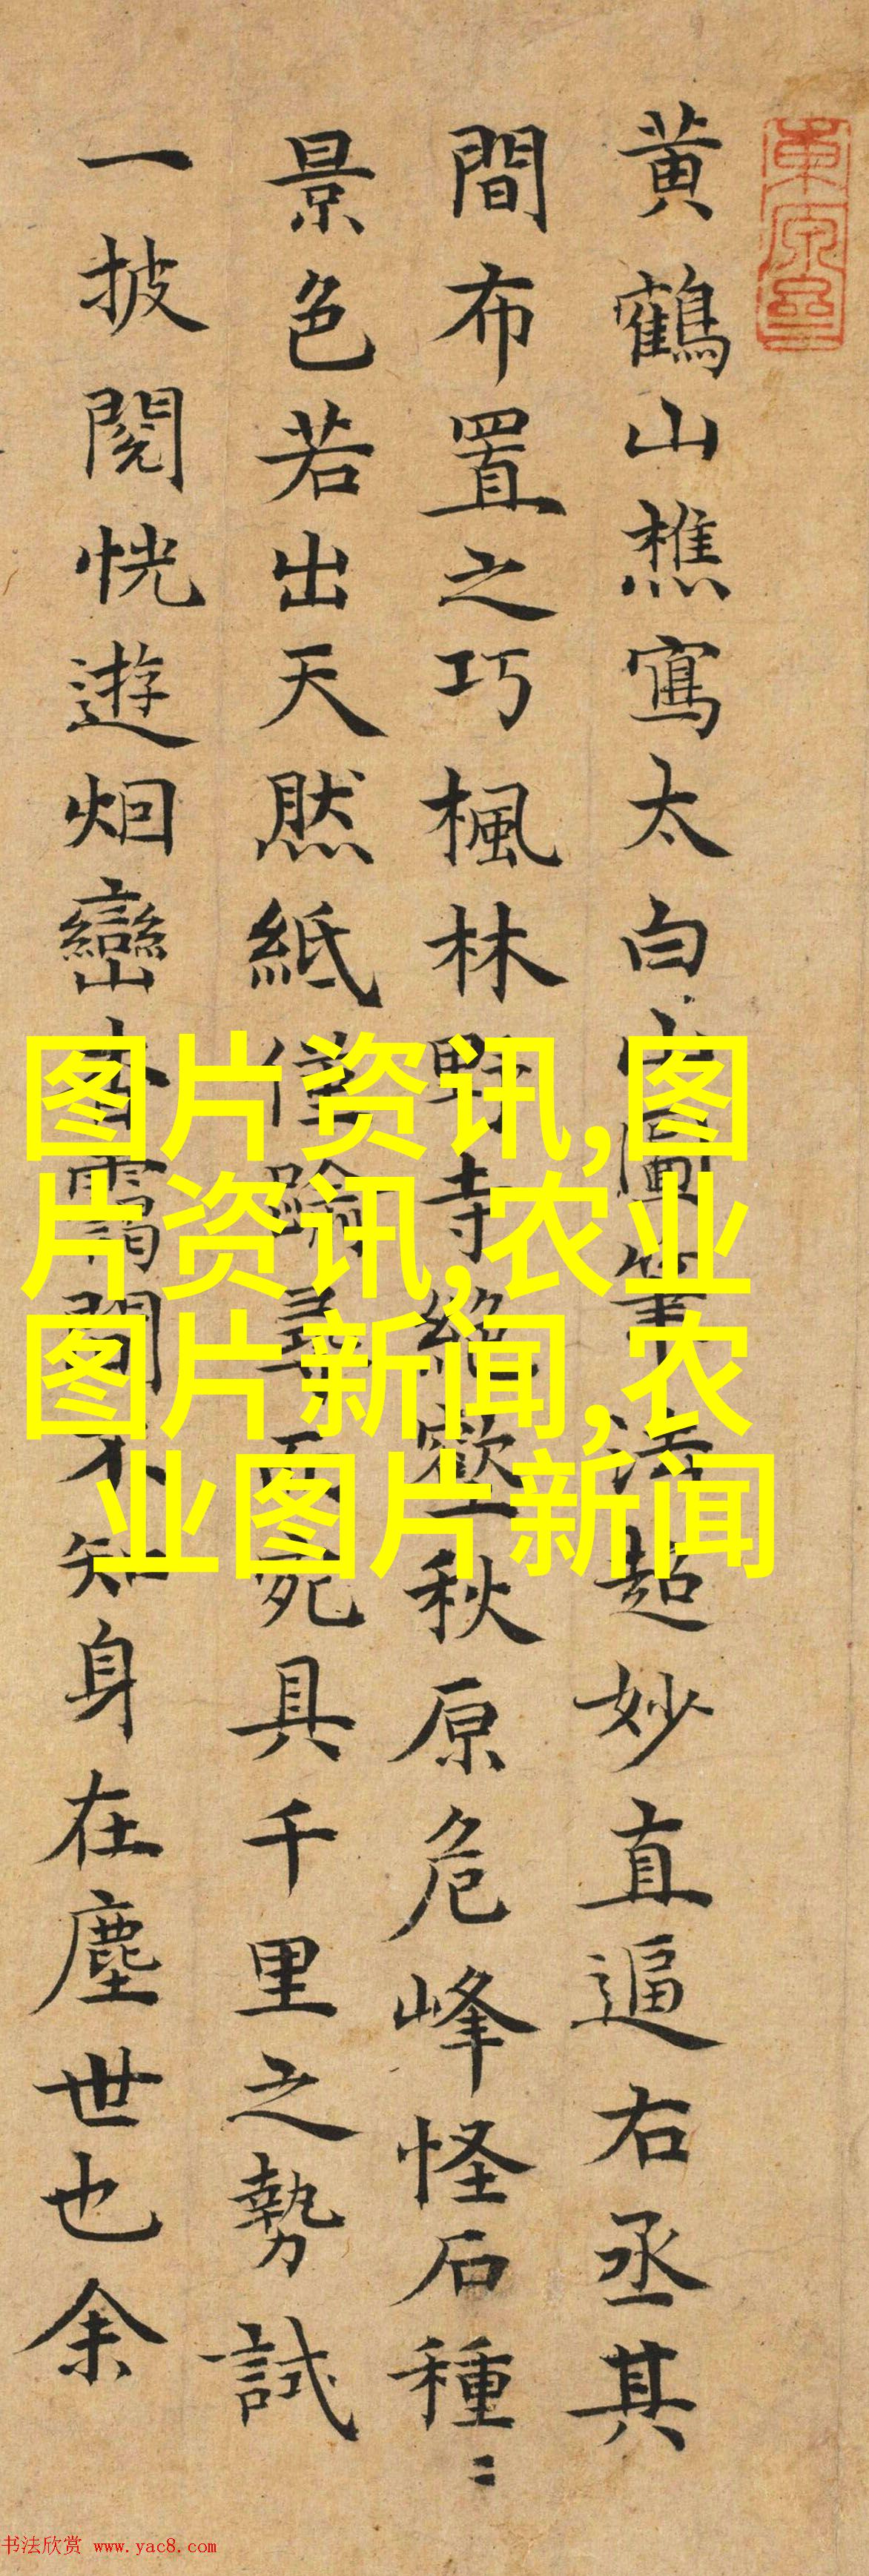 黄鶴山樵寫太白山圖筆法超妙直逼右丞其
間布置之巧楓林野寺絕壑秋原危峰怪石種〻
景色若出天然紙僅踰尋丈宛具千里之勢試
一披閱恍遊烟巒杳靄間不知身在塵世也余
图片资讯,图
片资讯,农业
图片新闻,农
业图片新闻
书法欣赏 www.yac8.com